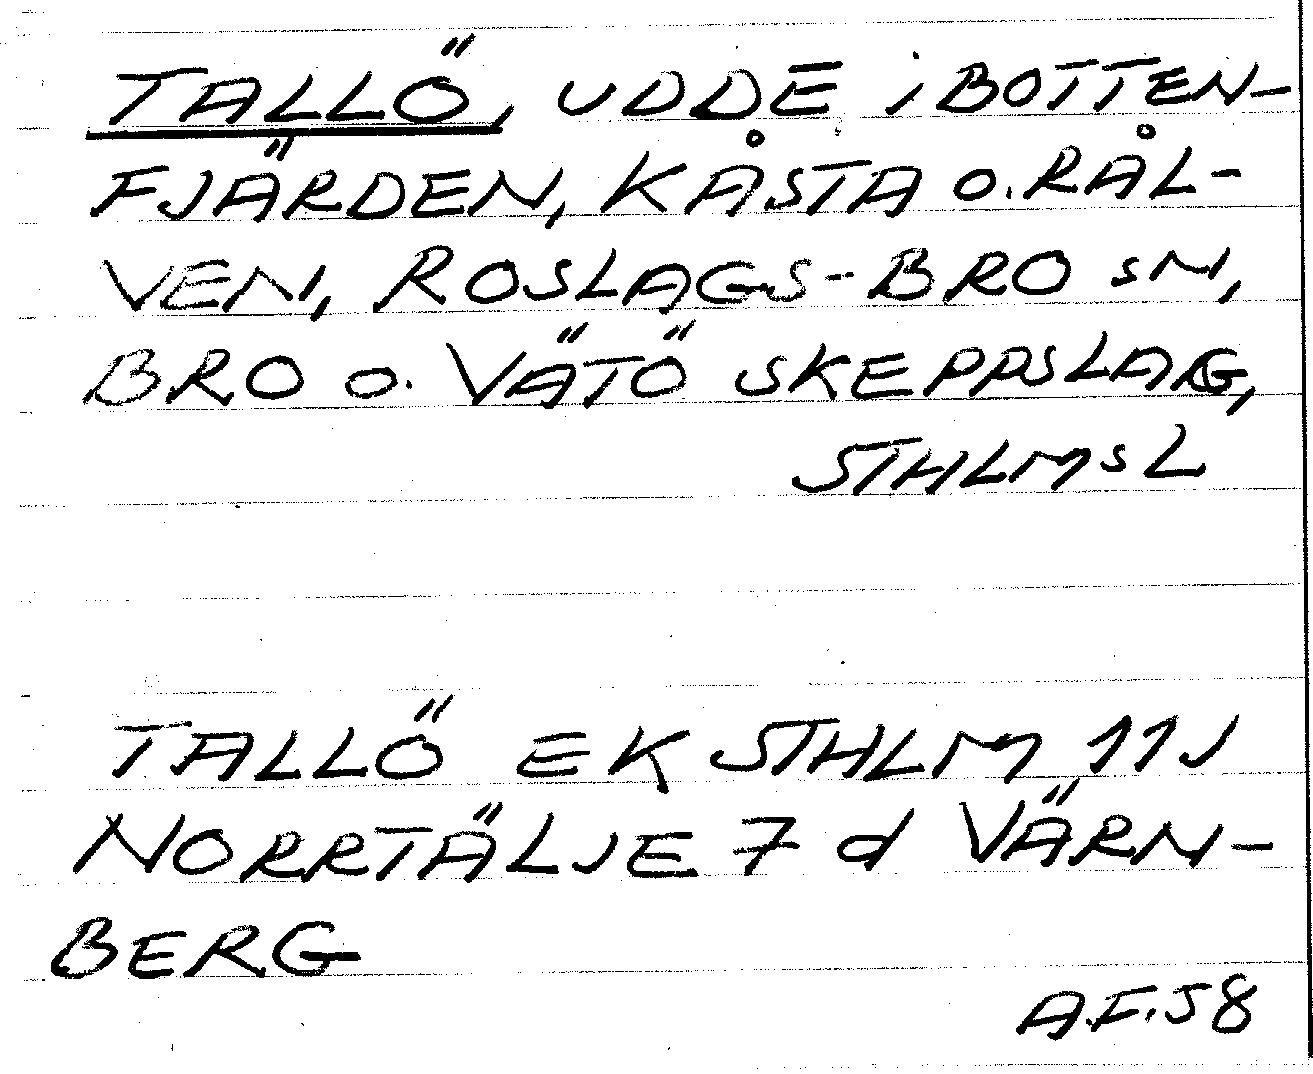 TALLÖ, UDDE i BOTTEN-
FJÄRDEN, KÅSTA o. RÅL-
VEN, ROSLAGS-BRO SN,
BRO o. VÄTÖ SKEPPSLAG,
STHLMS L
TALLÖ EK STHLM 11J
NORRTÄLJE 7 d VÄRN-
BERG
A.F. 58